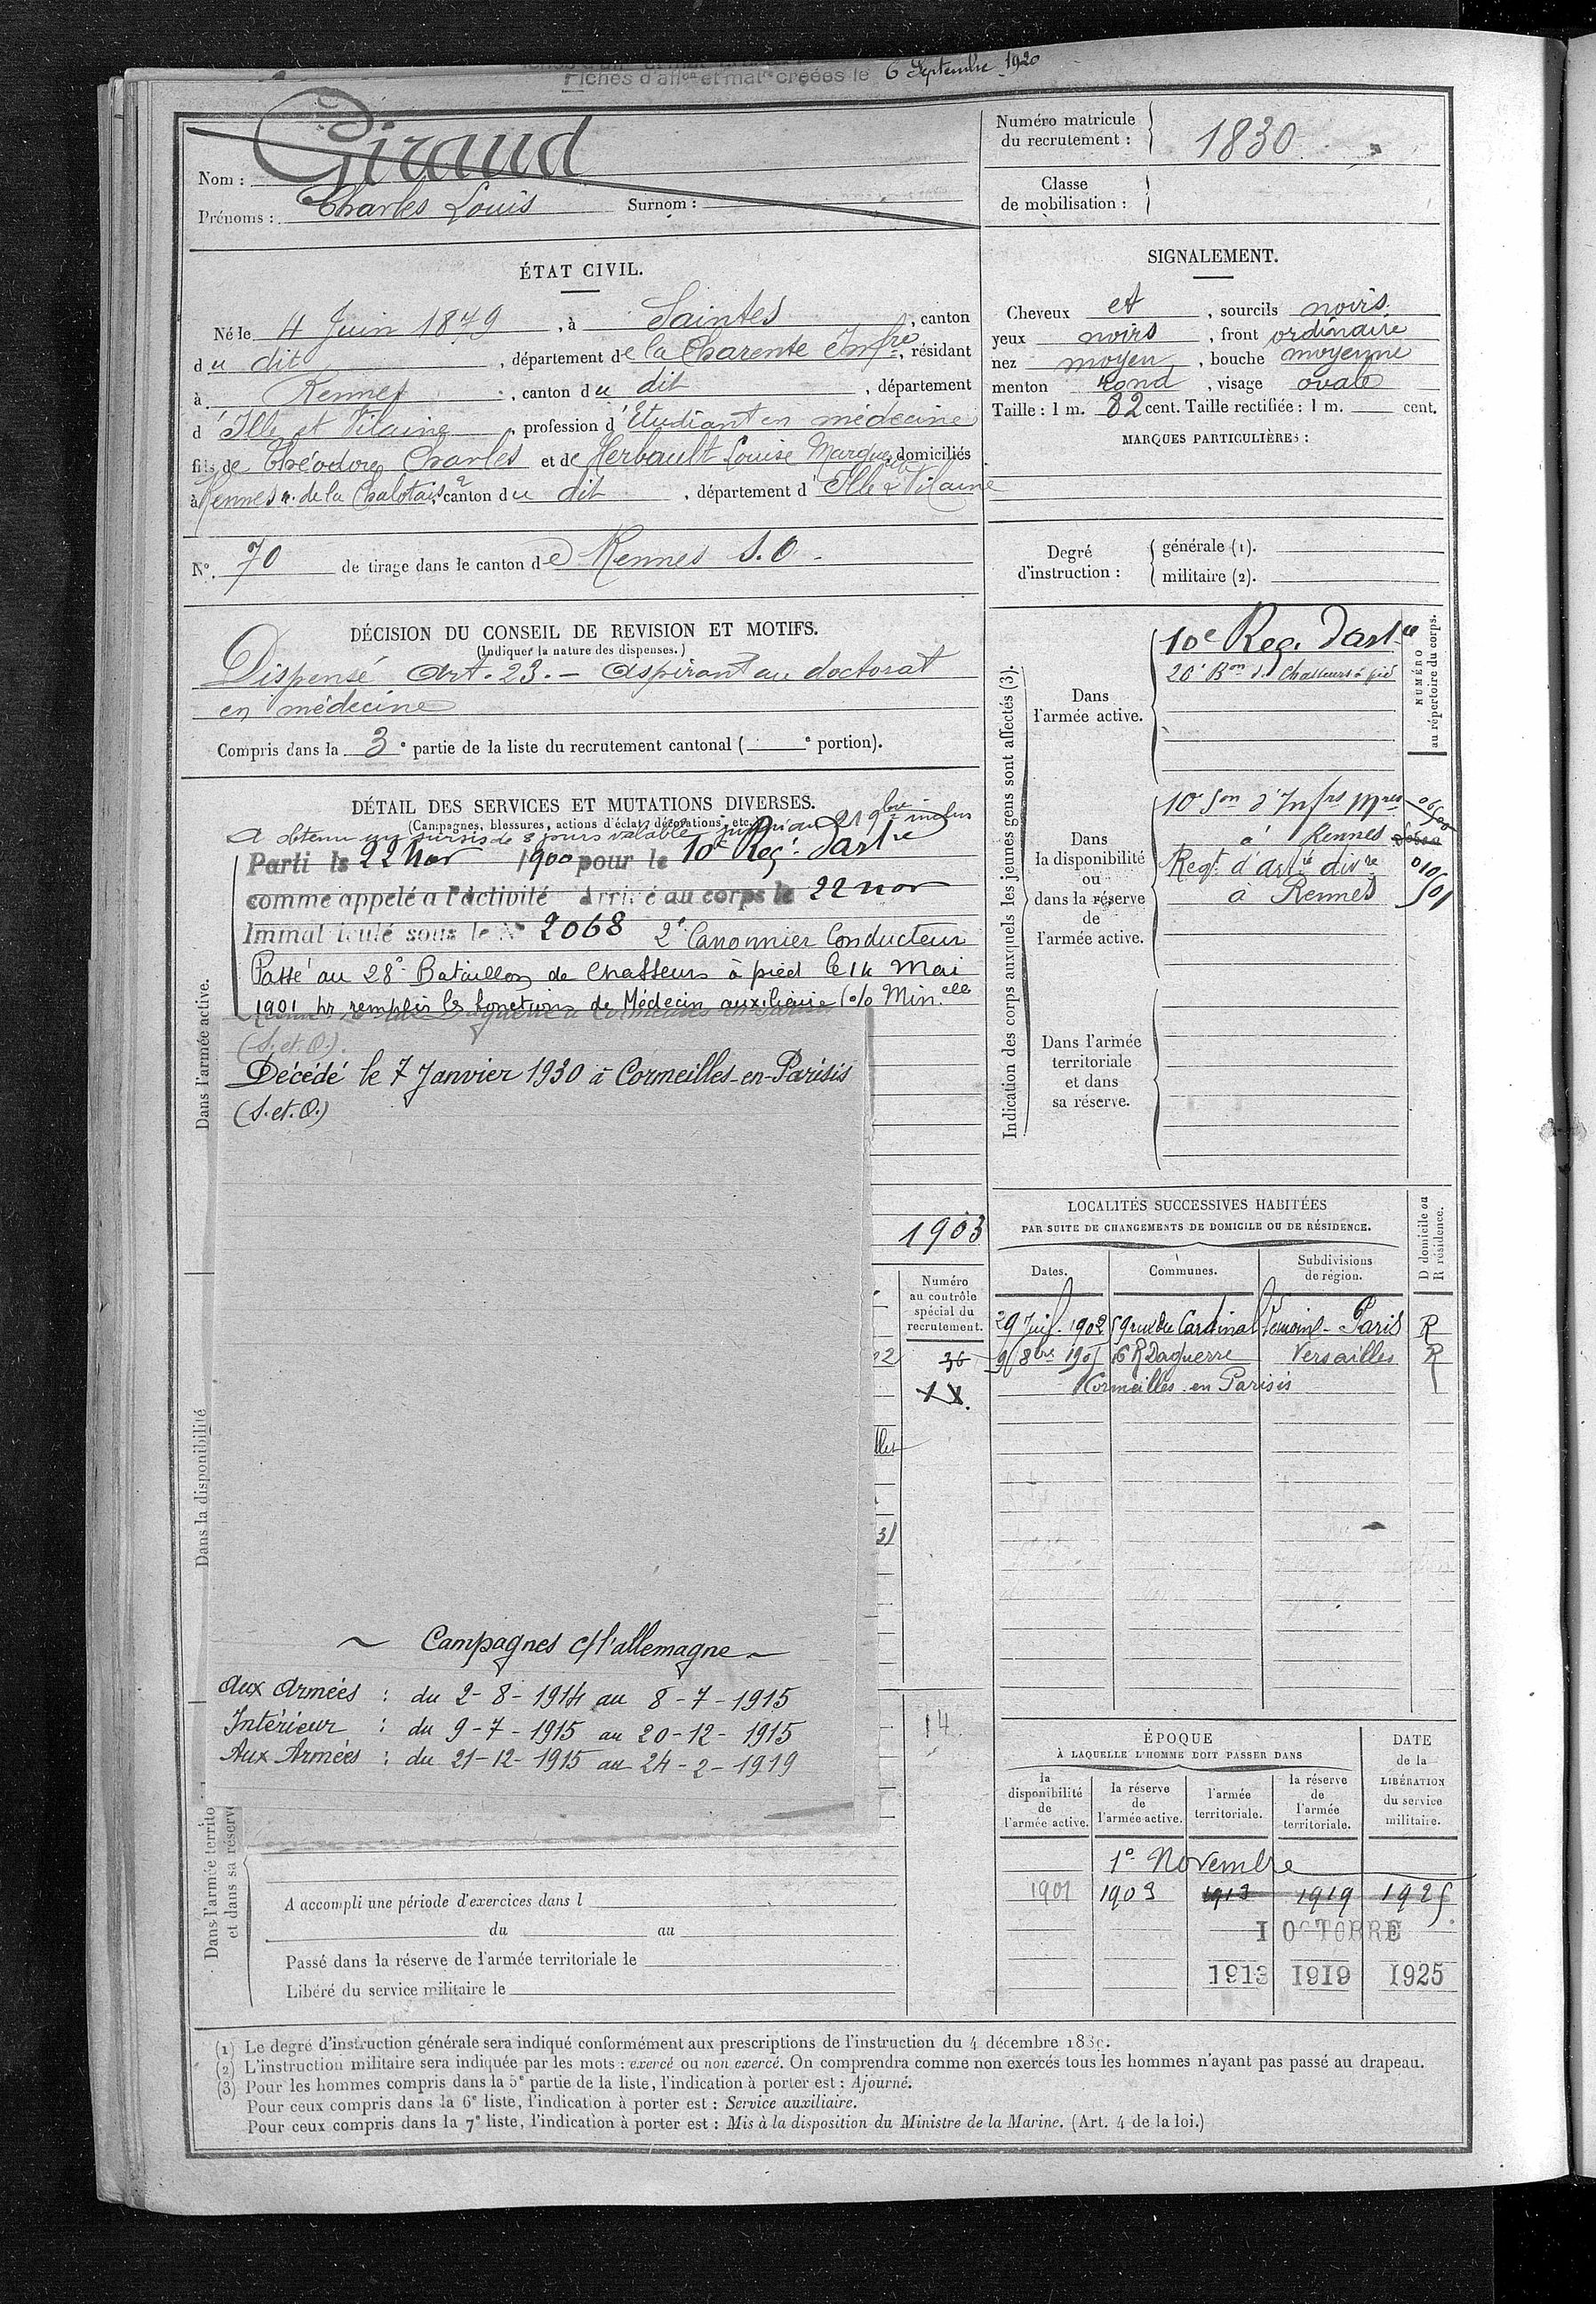 Fiches d'aff<sup>on</sup> et mat<sup>re</sup> créées le 6 Septembre 1920
Nom : Giraud
Prénoms : Charles Louis Surnom :
Numéro matricule
du recrutement : 1830
Classe
de mobilisation :
ÉTAT CIVIL.
Né le 4 Juin 1879, à Saintes, canton
du dit, département de la Charente Infre, résidant
à Rennes, canton du dit, département
d'Ille et Vilaine, profession d'Etudiant en médecine
fils de Théodore Charles et de Herbault Louise Marguerite domiciliés
à Rennes r. de la Chalotais 2, canton du dit, département d'Ille & Vilaine
N°. 70 de tirage dans le canton de Rennes S.O -
SIGNALEMENT.
Cheveux et, sourcils noirs
yeux noirs, front ordinaire
nez moyen, bouche moyenne
menton rond, visage ovale
Taille : 1 m. 82 cent. Taille rectifiée : 1 m. cent.
MARQUES PARTICULIÈRES :
Degré
d'instruction :
générale (1).
militaire (2).
DÉCISION DU CONSEIL DE REVISION ET MOTIFS.
(Indiquer la nature des dispenses.)
Dispensé Art. 23. - aspirant au doctorat
en médecine
Compris dans la 3e partie de la liste du recrutement cantonal ( e portion).
DÉTAIL DES SERVICES ET MUTATIONS DIVERSES.
(Campagnes, blessures, actions d'éclat, décorations, etc.)
A obtenu un sursis de 8 jours valable jusqu'au 21 9bre inclus
Parti le 22 Nov 1900 pour le 10e Reg. d'artie
comme appelé à l'activité Arrivé au corps le 22 nov
Immatriculé sous le N° 2068 2e Canonnier Conducteur
Passé au 28e Bataillon de Chasseurs à pied le 14 Mai
1901 pr remplir les fonctions de Médecin auxiliaire (o/o Min.elle
(S. et O.).
Décédé le 7 Janvier 1930 à Cormeilles-en-Parisis
(S. et. O.)
Dans l'armée active.
1903
Dans la disponibilité
Numéro
au contrôle
spécial du
recrutement.
02 36
31
14
~ Campagnes c/ l'allemagne ~
Aux Armées : du 2-8-1914 au 8-7-1915
Intérieur : du 9-7-1915 au 20-12-1915
Aux Armées : du 21-12-1915 au 24-2-1919
Dans l'armée territo
et dans sa réserve
A accompli une période d'exercices dans l
du au
Passé dans la réserve de l'armée territoriale le
Libéré du service militaire le
Indication des corps auxquels les jeunes gens sont affectés (3).
NUMÉRO
au répertoire du corps.
Dans
l'armée active.
10e Reg. d'artie
20e Bon d. Chasseurs à pied
Dans
la disponibilité
ou
dans la réserve
de
l'armée active.
10e Son d'Infrs Mres
à Rennes
Regt. d'artie divre
à Rennes
Dans l'armée
territoriale
et dans
sa réserve.
LOCALITÉS SUCCESSIVES HABITÉES
PAR SUITE DE CHANGEMENTS DE DOMICILE OU DE RÉSIDENCE.
D domicile ou
R résidence.
Dates. Communes. Subdivisions
de région.
29 Juil. 1902 59 rue du Cardinal Lemoine - Paris R
9 8bre 1905 16 R Daguerre Versailles R
Cormeilles en Parisis
ÉPOQUE
À LAQUELLE L'HOMME DOIT PASSER DANS
la
disponibilité
de
l'armée active.
la réserve
de
l'armée active.
l'armée
territoriale.
la réserve
de
l'armée
territoriale.
DATE
de la
LIBÉRATION
du service
militaire.
1er Novembre
1901 1903 1913 1919 1925
1 OCTOBRE
1913 1919 1925
(1) Le degré d'instruction générale sera indiqué conformément aux prescriptions de l'instruction du 4 décembre 1889.
(2) L'instruction militaire sera indiquée par les mots : exercé ou non exercé. On comprendra comme non exercés tous les hommes n'ayant pas passé au drapeau.
(3) Pour les hommes compris dans la 5e partie de la liste, l'indication à porter est : Ajourné.
Pour ceux compris dans la 6e liste, l'indication à porter est : Service auxiliaire.
Pour ceux compris dans la 7e liste, l'indication à porter est : Mis à la disposition du Ministre de la Marine. (Art. 4 de la loi.)